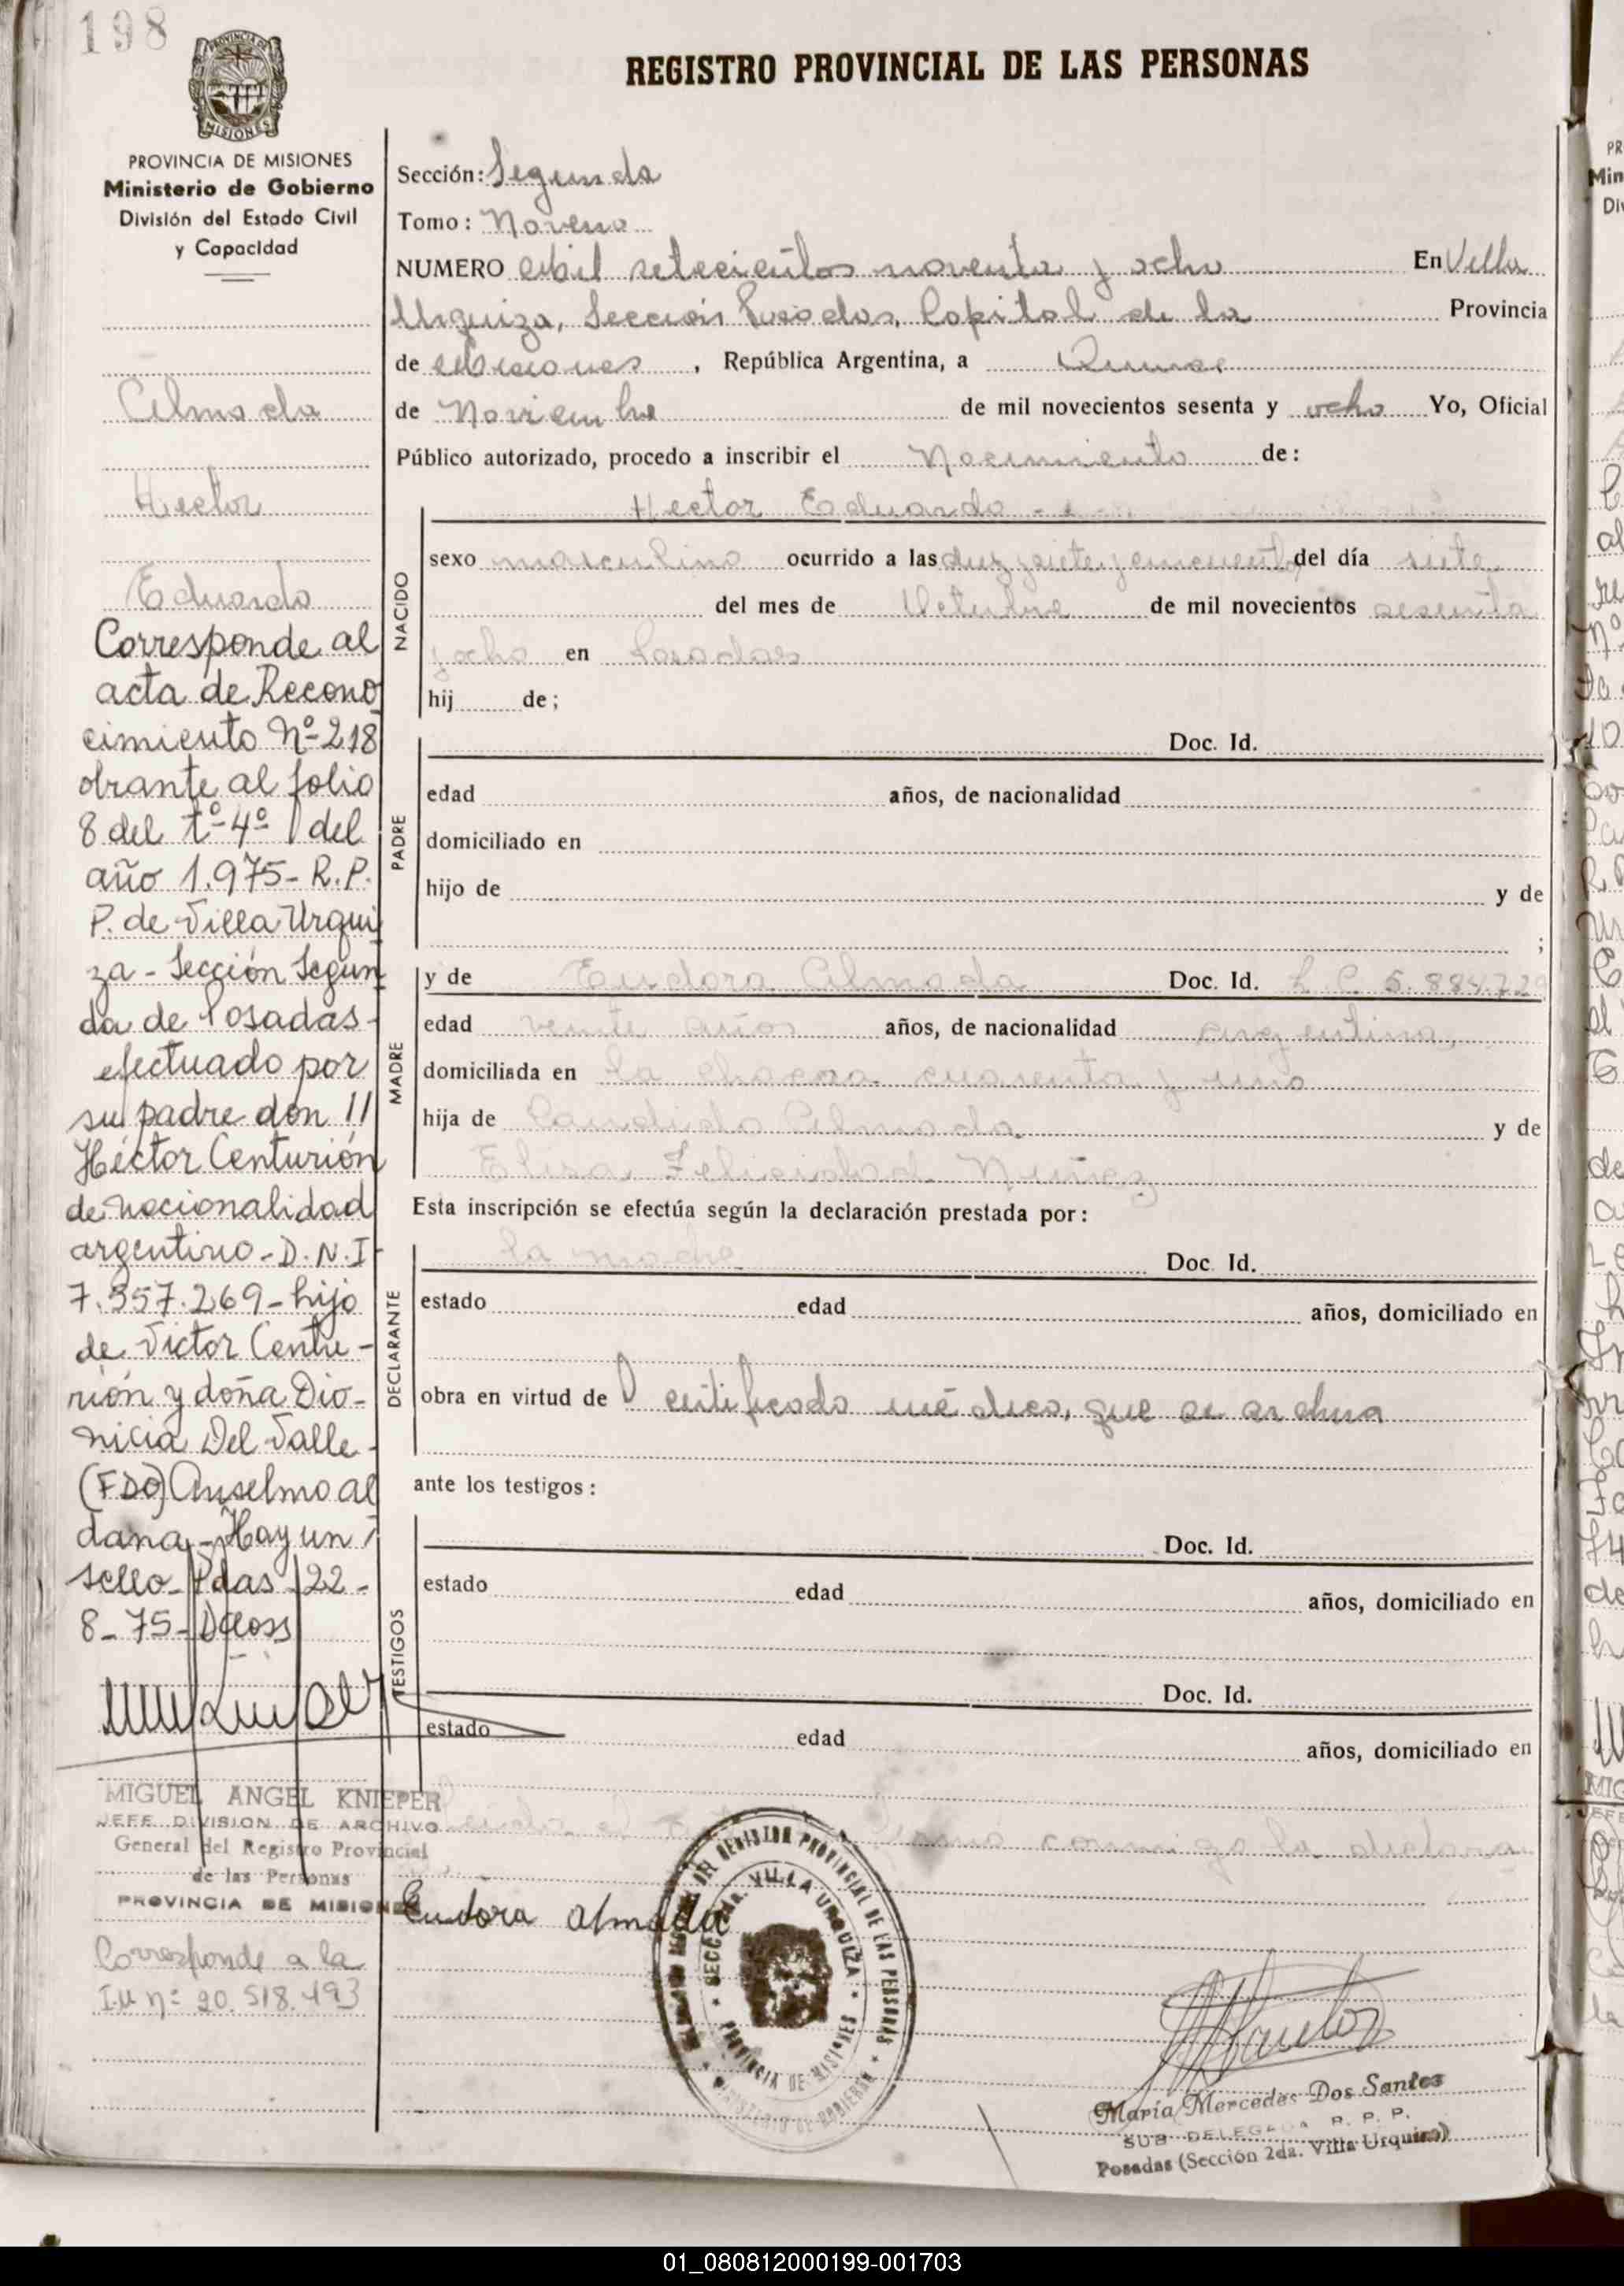 198
PROVINCIA DE MISIONES
Ministerio de Gobierno
División del Estado Civil
y Capacidad
Almada
Hector
Eduardo
Corresponde al
acta de Recono
cimiento Nº 218
obrante al folio
8 del tº 4º del
año 1.975- R.P.
P. de Villa Urqui
za - Sección Segun
da de Posadas-
efectuado por
su padre don //
Héctor Centurión
de nacionalidad
argentino - D.N.I
7.357.269 - hijo
de Victor Centu-
rión y doña Dio-
nicia Del Valle-
(FDO) Anselmo Al
dana - Hay un
sello - Pdas 22-
8-75-
MIGUEL ANGEL KNIEPER
JEFE DIVISION DE ARCHIVO
General del Registro Provincial
de las Personas
PROVINCIA DE MISIONES
Corresponde a la
I.U nº 20.518.493
REGISTRO PROVINCIAL DE LAS PERSONAS
Sección: Segunda
Tomo: Noveno
NUMERO Mil setecientos noventa y ocho En Villa
Urquiza, Sección Posadas, Capital de la Provincia
de Misiones, República Argentina, a Quince
de Noviembre de mil novecientos sesenta y ocho Yo, Oficial
Público autorizado, procedo a inscribir el Nacimiento de:
NACIDO
Hector Eduardo
sexo masculino ocurrido a las diez y siete y cincuenta del día siete
del mes de Octubre de mil novecientos sesenta
y ocho en Posadas
hij de;
PADRE
Doc. Id.
edad años, de nacionalidad
domiciliado en
hijo de y de
;
MADRE
y de Eudora Almada Doc. Id. L.C. 5.884.729
edad veinte años años, de nacionalidad argentina
domiciliada en la chacra cuarenta y uno
hija de Candido Almada y de
Elisa Felicidad Nuñez
Esta inscripción se efectúa según la declaración prestada por:
DECLARANTE
la madre Doc. Id.
estado edad años, domiciliado en
obra en virtud de certificado médico, que se archiva
ante los testigos:
TESTIGOS
Doc. Id.
estado edad años, domiciliado en
Doc. Id.
estado edad años, domiciliado en
conmigo la declara
Eudora Almada
PROVINCIAL DE LAS PERSONAS
VILLA URQUIZA
PROVINCIA DE MISIONES
MINISTERIO DE GOBIERNO
María Mercedes Dos Santos
SUB DELEGADA R. P. P.
Posadas (Sección 2da. Villa Urquiza)
01_080812000199-001703